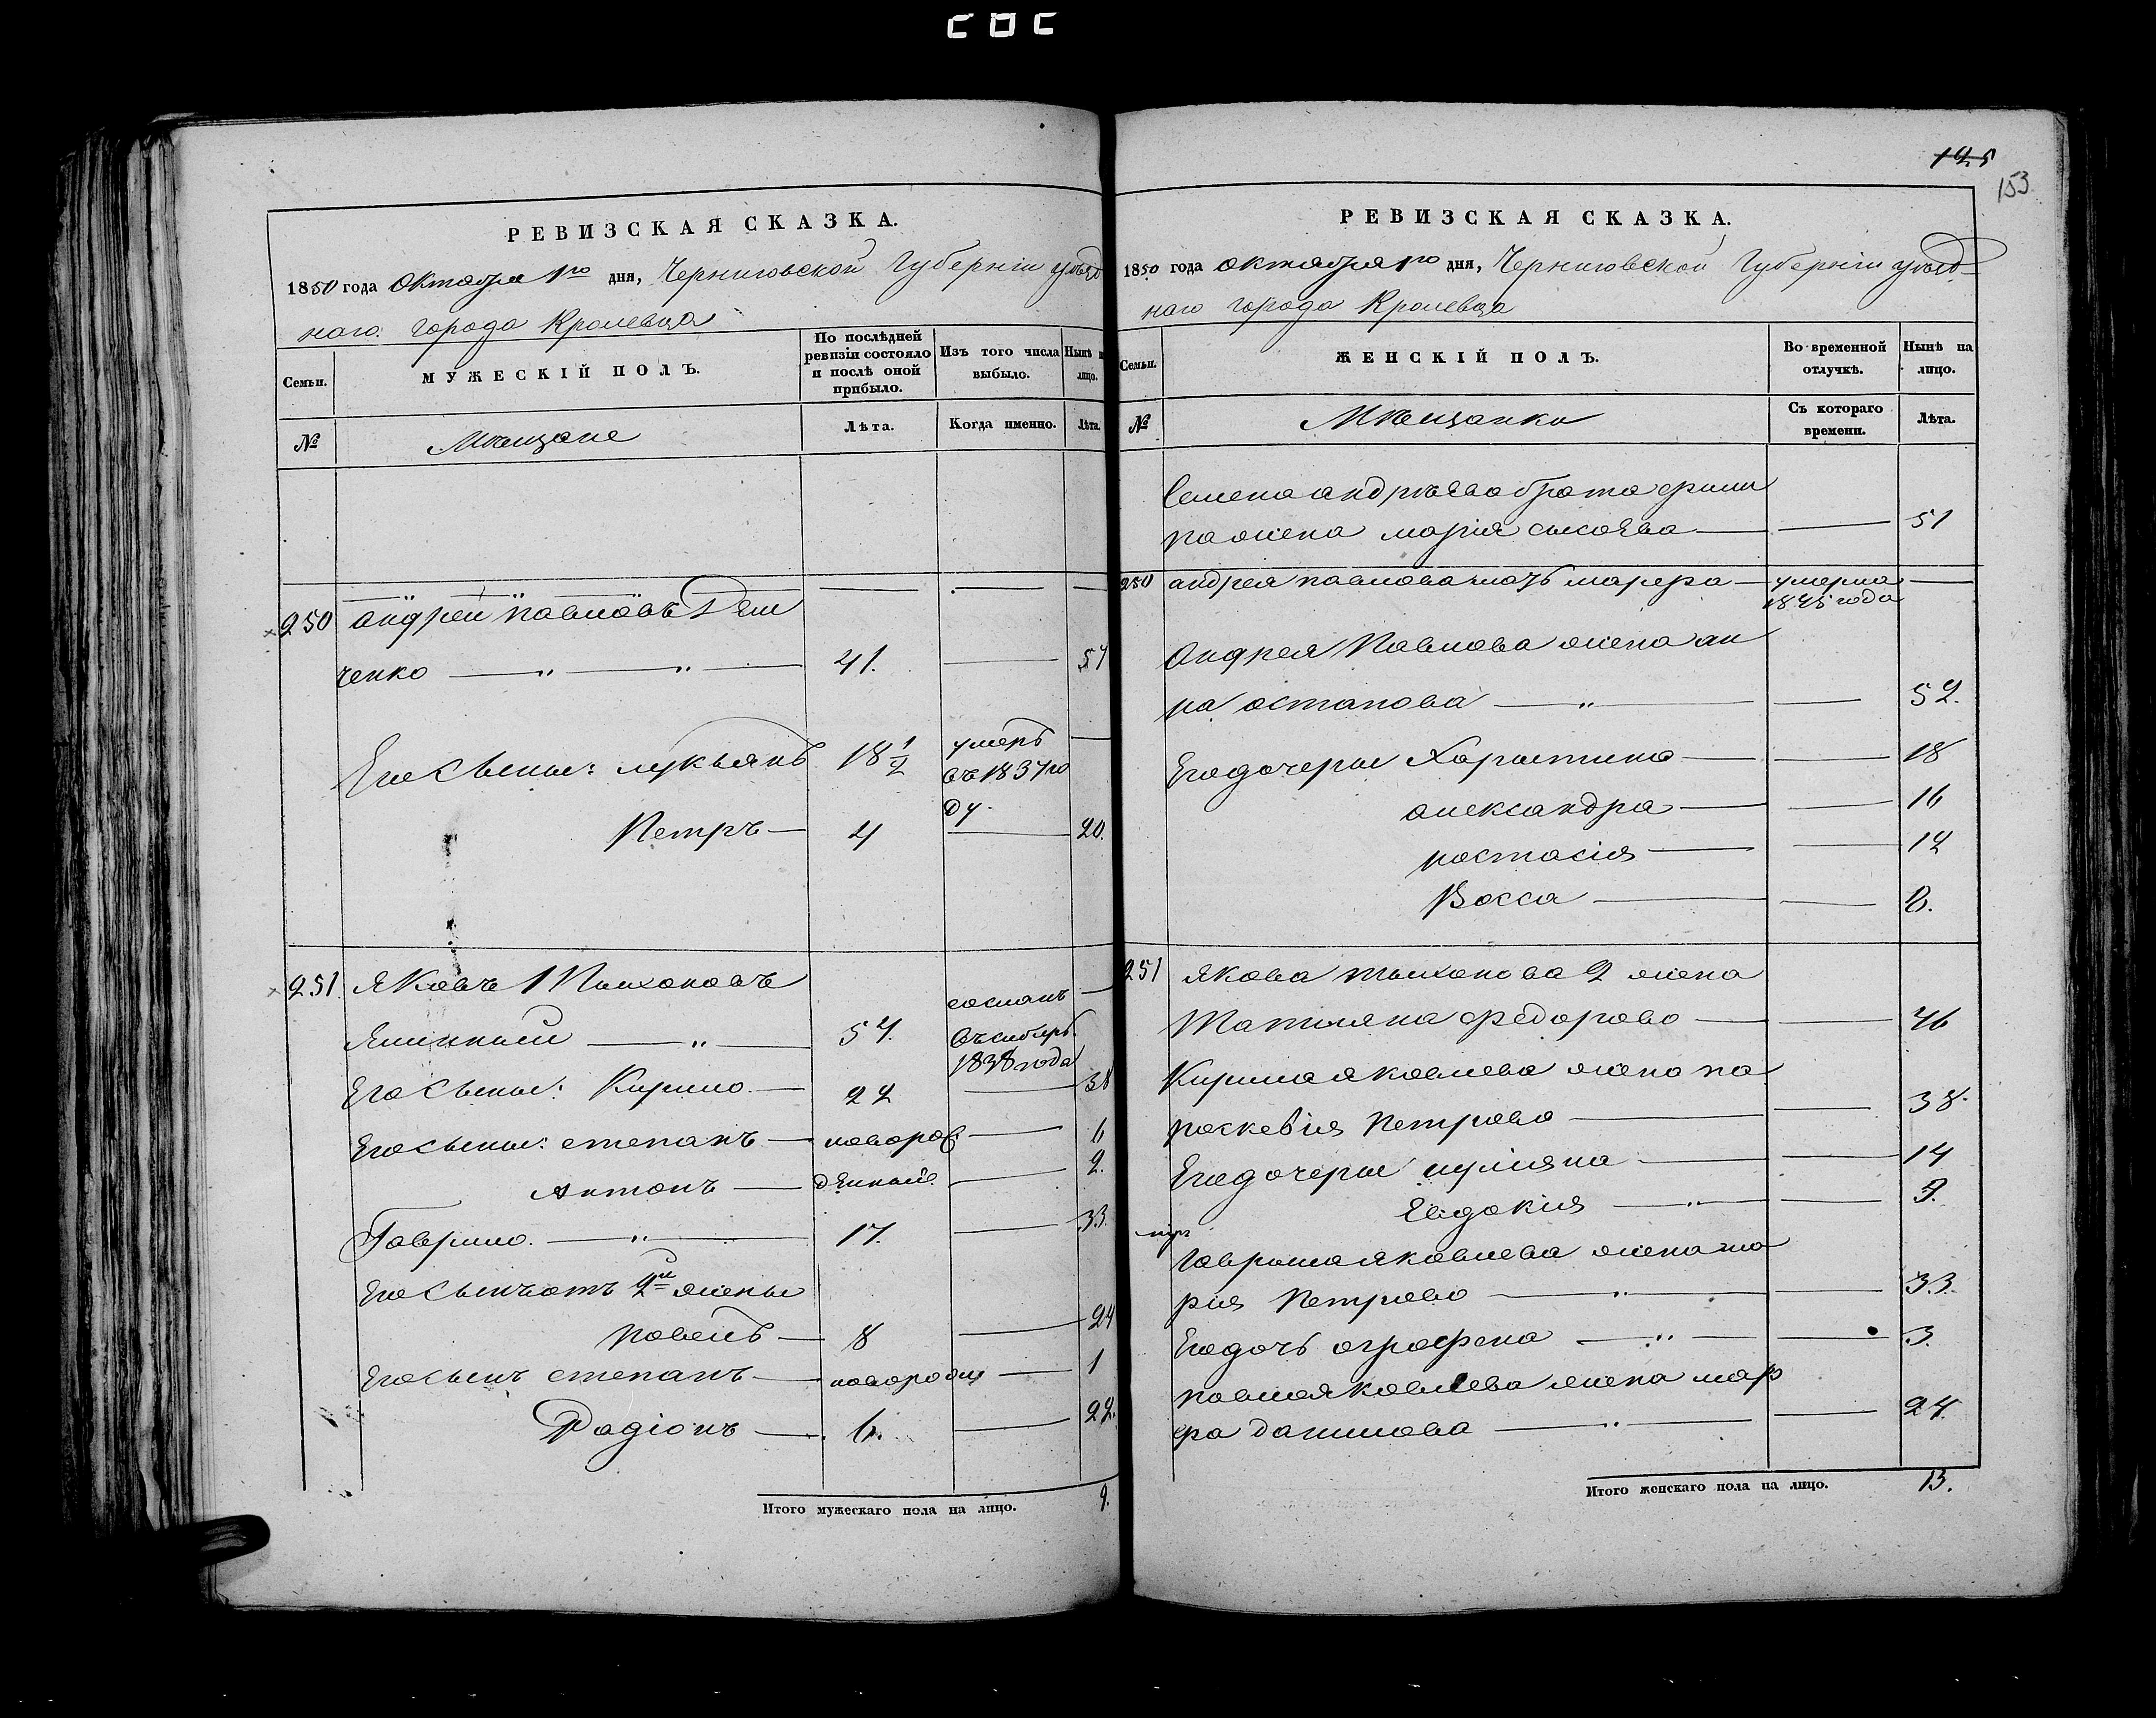 125
153
РЕВИЗСКАЯ СКАЗКА.
1850 года октября 1го дня, Черниговской Губерніи уѣзд
наго города Кролевца
Семьи.
МУЖЕСКІЙ ПОЛЪ.
По послѣдней ревизіи состояло и послѣ оной прибыло.
Изъ того числа выбыло.
Нынѣ н лицо.
№
Мѣщане
Лѣта.
Когда именно.
Лѣта.
250 андрей павловъ
ченко — „ — „ — 41. — 57
Его Сыны: лукьянъ 18 1/2 умеръ —
въ 1837 го
ду.
Петръ — 4 — 20.
251. Яковъ Тихоновъ
57. сосланъ —
въ сибирь
1838 года
Его Сыны: Кирило — 22 — 38
Его сыны: степанъ — новорож — 6
Антонъ — денные — 2.
Гаврило. — „ — 17. — 33.
Его Сынъ отъ 2й жены
павелъ — 8 — 24
Его сынъ степанъ — новорожд — 1
Радіонъ — 6. — 22.
Итого мужескаго пола на лицо. 9.
РЕВИЗСКАЯ СКАЗКА.
1850 года октября 1го дня, Черниговской Губерніи уѣзд
наго города Кролевца
Семьи.
ЖЕНСКІЙ ПОЛЪ.
Во временной отлучкѣ.
Нынѣ на лицо.
№
Мѣщанки
Съ котораго времени.
Лѣта.
Семена андрѣева брата фили
па жена марія сысоева — — 51
250 андрея павлова мать марфа — умерла —
1845 года
Андрея Павлова жена ан
на остапова — „ — — 52.
Его дочеры Харытина — — 18
александра — — 16
настасія — — 12
Васса — — 8.
251 Якова тихонова 2 жена
Татияна федорова — — 46
Кирила яковлева жена па
раскевія Петрова — — 38.
Его дочеры уліяна — — 14
Евдокія — „ — — 9.
Гаврыла яковлева жена ма
рия Петрова — „ — — 33.
Его дочь аграфена — „ — — 3.
павла яковлева жена мар
фа данилова — „ — — 24.
Итого женскаго пола на лицо. 13.